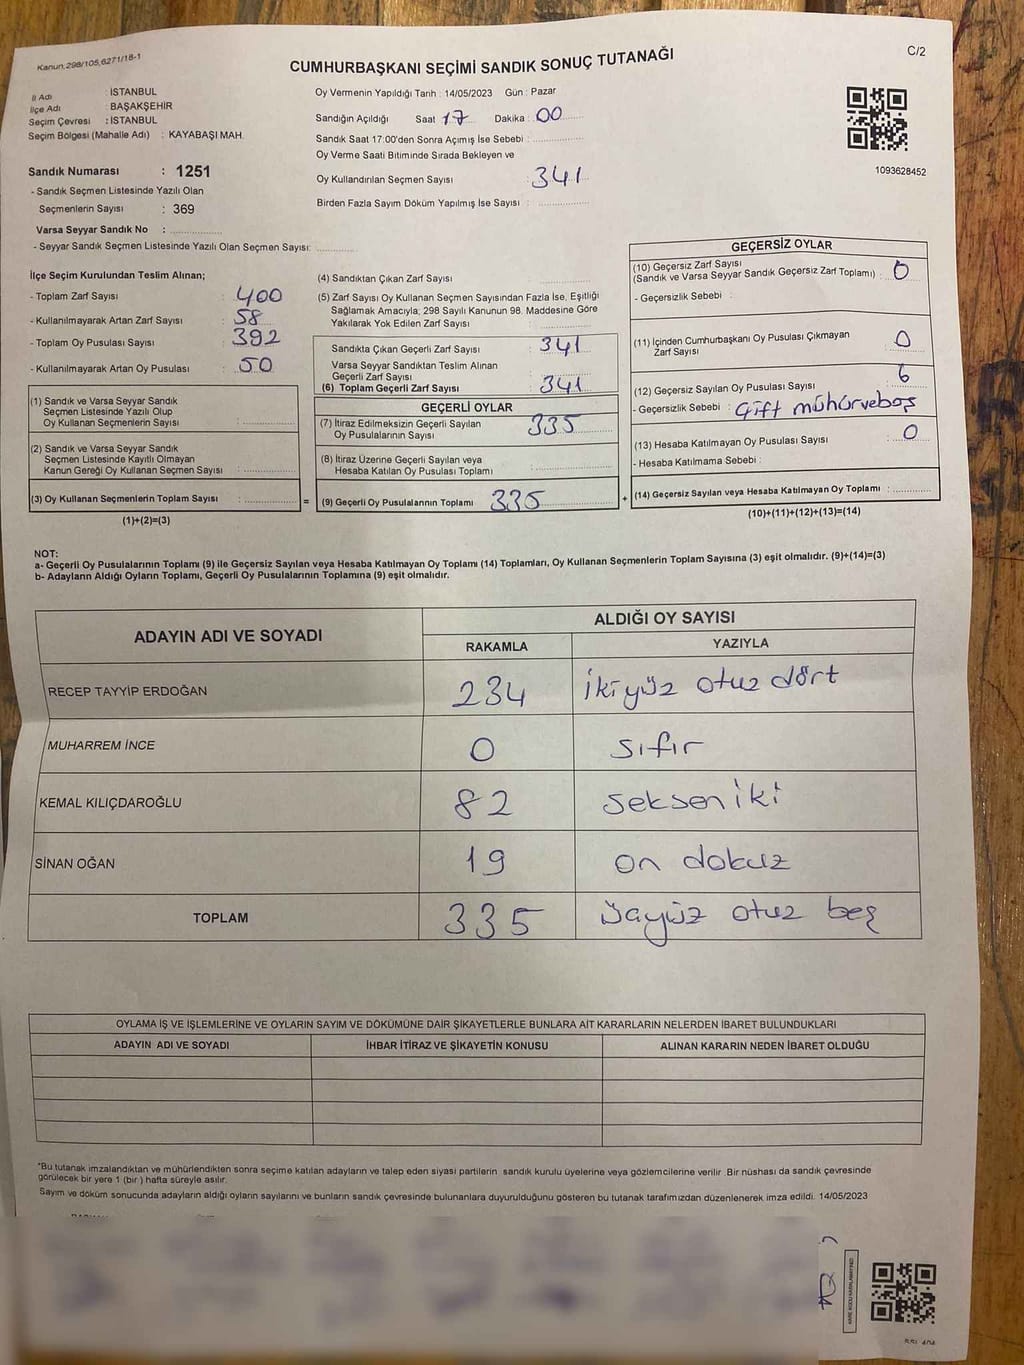 Kanun,298/105,6271/18-1
C/2
CUMHURBAŞKANI SEÇİMİ SANDIK SONUÇ TUTANAĞI
İl Adı : İSTANBUL
İlçe Adı : BAŞAKŞEHİR
Seçim Çevresi : İSTANBUL
Seçim Bölgesi (Mahalle Adı) : KAYABAŞI MAH.
Sandık Numarası : 1251
- Sandık Seçmen Listesinde Yazılı Olan
Seçmenlerin Sayısı : 369
Varsa Seyyar Sandık No :
- Seyyar Sandık Seçmen Listesinde Yazılı Olan Seçmen Sayısı:
Oy Vermenin Yapıldığı Tarih : 14/05/2023 Gün : Pazar
Sandığın Açıldığı Saat 17 Dakika : 00
Sandık Saat 17:00'den Sonra Açımış İse Sebebi :
Oy Verme Saati Bitiminde Sırada Bekleyen ve
Oy Kullandırılan Seçmen Sayısı : 341
Birden Fazla Sayım Döküm Yapılmış İse Sayısı :
1093628452
İlçe Seçim Kurulundan Teslim Alınan;
- Toplam Zarf Sayısı : 400
- Kullanılmayarak Artan Zarf Sayısı : 58
- Toplam Oy Pusulası Sayısı : 392
- Kullanılmayarak Artan Oy Pusulası : 50
(1) Sandık ve Varsa Seyyar Sandık
Seçmen Listesinde Yazılı Olup
Oy Kullanan Seçmenlerin Sayısı :
(2) Sandık ve Varsa Seyyar Sandık
Seçmen Listesinde Kayıtlı Olmayan
Kanun Gereği Oy Kullanan Seçmen Sayısı :
(3) Oy Kullanan Seçmenlerin Toplam Sayısı :
(1)+(2)=(3)
(4) Sandıktan Çıkan Zarf Sayısı :
(5) Zarf Sayısı Oy Kullanan Seçmen Sayısından Fazla İse, Eşitliği
Sağlamak Amacıyla; 298 Sayılı Kanunun 98. Maddesine Göre
Yakılarak Yok Edilen Zarf Sayısı :
Sandıkta Çıkan Geçerli Zarf Sayısı : 341
Varsa Seyyar Sandıktan Teslim Alınan
Geçerli Zarf Sayısı :
(6) Toplam Geçerli Zarf Sayısı : 341
GEÇERLİ OYLAR
(7) İtiraz Edilmeksizin Geçerli Sayılan
Oy Pusulalarının Sayısı : 335
(8) İtiraz Üzerine Geçerli Sayılan veya
Hesaba Katılan Oy Pusulası Toplamı :
= (9) Geçerli Oy Pusulalarının Toplamı 335 +
GEÇERSİZ OYLAR
(10) Geçersiz Zarf Sayısı
(Sandık ve Varsa Seyyar Sandık Geçersiz Zarf Toplamı) : 0
- Geçersizlik Sebebi :
(11) İçinden Cumhurbaşkanı Oy Pusulası Çıkmayan
Zarf Sayısı : 0
(12) Geçersiz Sayılan Oy Pusulası Sayısı : 6
- Geçersizlik Sebebi : Çift mühürveboş
(13) Hesaba Katılmayan Oy Pusulası Sayısı : 0
- Hesaba Katılmama Sebebi :
(14) Geçersiz Sayılan veya Hesaba Katılmayan Oy Toplamı :
(10)+(11)+(12)+(13)=(14)
NOT:
a- Geçerli Oy Pusulalarının Toplamı (9) ile Geçersiz Sayılan veya Hesaba Katılmayan Oy Toplamı (14) Toplamları, Oy Kullanan Seçmenlerin Toplam Sayısına (3) eşit olmalıdır. (9)+(14)=(3)
b- Adayların Aldığı Oyların Toplamı, Geçerli Oy Pusulalarının Toplamına (9) eşit olmalıdır.
ADAYIN ADI VE SOYADI ALDIĞI OY SAYISI
RAKAMLA YAZIYLA
RECEP TAYYİP ERDOĞAN 234 ikiyüz otuz dört
MUHARREM İNCE 0 sıfır
KEMAL KILIÇDAROĞLU 82 seksen iki
SİNAN OĞAN 19 on dokuz
TOPLAM 335 üçyüz otuz beş
OYLAMA İŞ VE İŞLEMLERİNE VE OYLARIN SAYIM VE DÖKÜMÜNE DAİR ŞİKAYETLERLE BUNLARA AİT KARARLARIN NELERDEN İBARET BULUNDUKLARI
ADAYIN ADI VE SOYADI İHBAR İTİRAZ VE ŞİKAYETİN KONUSU ALINAN KARARIN NEDEN İBARET OLDUĞU
*Bu tutanak imzalandıktan ve mühürlendikten sonra seçime katılan adayların ve talep eden siyasi partilerin sandık kurulu üyelerine veya gözlemcilerine verilir. Bir nüshası da sandık çevresinde
görülecek bir yere 1 (bir ) hafta süreyle asılır.
Sayım ve döküm sonucunda adayların aldığı oyların sayılarını ve bunların sandık çevresinde bulunanlara duyurulduğunu gösteren bu tutanak tarafımızdan düzenlenerek imza edildi. 14/05/2023